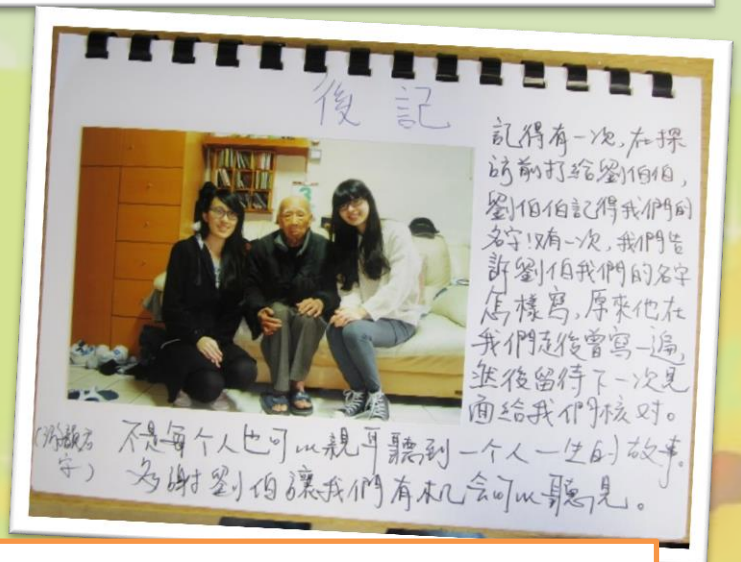 後記
記得有一次,在探
訪前打給劉伯伯,
劉伯伯記得我們的
名字!又有一次,我們告
訴劉伯我們的名字
怎樣寫,原來他在
我們走後曾寫一遍,
然後留待下一次見
面給我們核对。
不是每个人也可以親耳聽到一个人一生的故事。
多謝劉伯讓我們有机会可以聽見。
字)